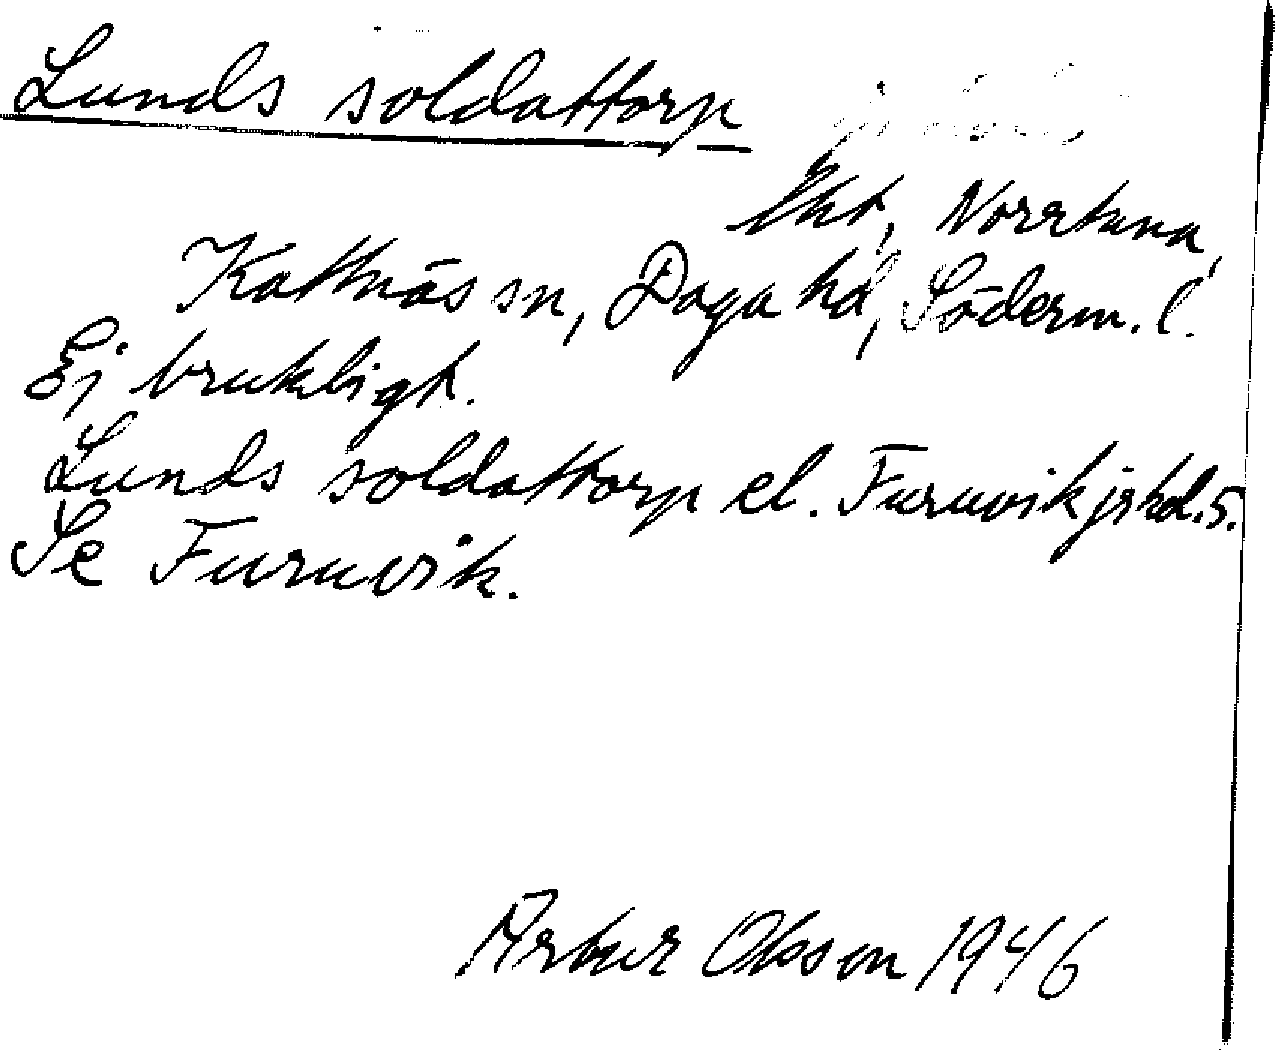 Lunds soldattorp
lht, Norrtuna,
Kattnäs sn, Daga hd, Söderm. l.
Ej brukligt.
Lunds soldattorp el. Furuvik jrhd. 5.
Se Furuvik.
Artur Olsson 1946